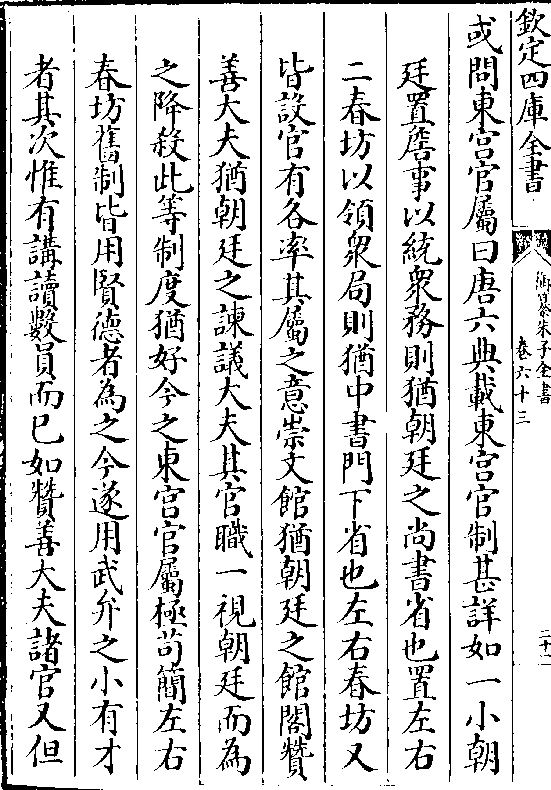 欽定四庫全書
御纂朱子全書
卷六十三
二十一
或問東宮官屬曰唐六典載東宮官制甚詳如一小朝
廷置詹事以統衆務則猶朝廷之尚書省也置左右
二春坊以領衆局則猶中書門下省也左右春坊又
皆設官有各率其屬之意崇文館猶朝廷之館閣贊
善大夫猶朝廷之諫議大夫其官職一視朝廷而為
之降殺此等制度猶好今之東宮官屬極茍簡左右
春坊舊制皆用賢德者為之今遂用武弁之小有才
者其次惟有講讀數員而已如贊善大夫諸官又但